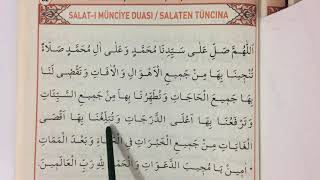 SALAT-I MÜNCİYE DUASI / SALATEN TÜNCINA
اَللّٰهُمَّ صَلِّ عَلٰى سَيِّدِنَا مُحَمَّدٍ وَعَلٰى اٰلِ مُحَمَّدٍ صَلَاةً
تُنْجِينَا بِهَا مِنْ جَمِيعِ الْاَهْوَالِ وَالْاٰفَاتِ وَتَقْضِى لَنَا
بِهَا جَمِيعَ الْحَاجَاتِ وَتُطَهِّرُنَا بِهَا مِنْ جَمِيعِ السَّيِّئَاتِ
وَتَرْفَعُنَا بِهَا اَعْلَى الدَّرَجَاتِ وَتُبَلِّغُنَا بِهَا اَقْصَى
الْغَايَاتِ مِنْ جَمِيعِ الْخَيْرَاتِ فِى وَبَعْدَ الْمَمَاتِ
اٰمِينَ يَا مُجِيبَ الدَّعَوَاتِ وَالْحَمْدُ لِلّٰهِ رَبِّ الْعَالَمِينَ